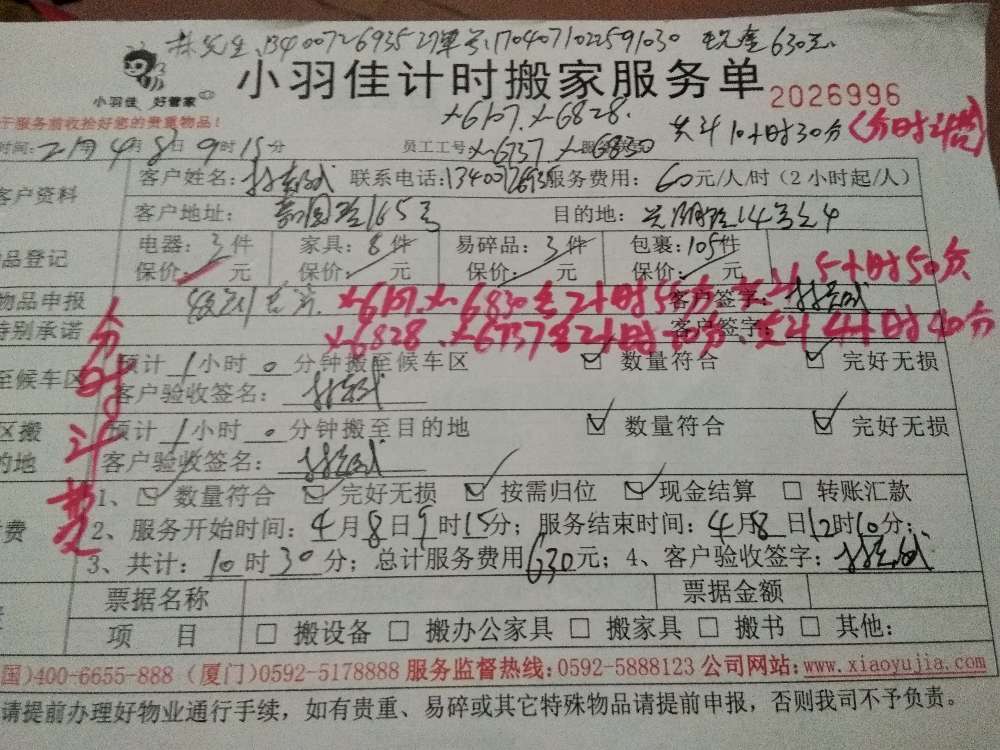 林先生 13400726935 27单号:1704071022591030 现金630元
小羽佳计时搬家服务单
小羽佳 好管家
2026996
于服务前收拾好您的贵重物品!
X-6107. X-6828.
共计10小时30分(分时计费)
时间: 年4月8日9时15分 员工工号 X-6737. X-6830
客户资料
客户姓名: 联系电话:13400726935 服务费用: 60元/人/时(2小时起/人)
客户地址: 园路165号 目的地: 路14号
品登记
电器: 3件 家具: 8件 易碎品: 3件 包裹: 105件
保价: 元 保价: 元 保价: 元 保价: 元
物品申报
特别承诺
X-6107. X-6830各2小时55分 共计5小时50分
客户签字:
X-6828. X-6737各2小时20分. 共计4小时40分
客户签字:
人分时计费
至候车区
预计1小时0分钟搬至候车区 ☑ 数量符合 ☑ 完好无损
客户验收签名:
区搬
的地
预计1小时0分钟搬至目的地 ☑ 数量符合 ☑ 完好无损
客户验收签名:
1、☑ 数量符合 ☑ 完好无损 ☑ 按需归位 ☑ 现金结算 □ 转账汇款
费
2、服务开始时间: 4月8日9时15分; 服务结束时间: 4月8日12时10分;
3、共计: 10时30分; 总计服务费用630元; 4、客户验收签字:
票据名称 票据金额
项 目 □ 搬设备 □ 搬办公家具 □ 搬家具 □ 搬书 □ 其他:
国)400-6655-888 (厦门)0592-5178888 服务监督热线:0592-5888123 公司网站:www.xiaoyujia.com
请提前办理好物业通行手续,如有贵重、易碎或其它特殊物品请提前申报,否则我司不予负责。